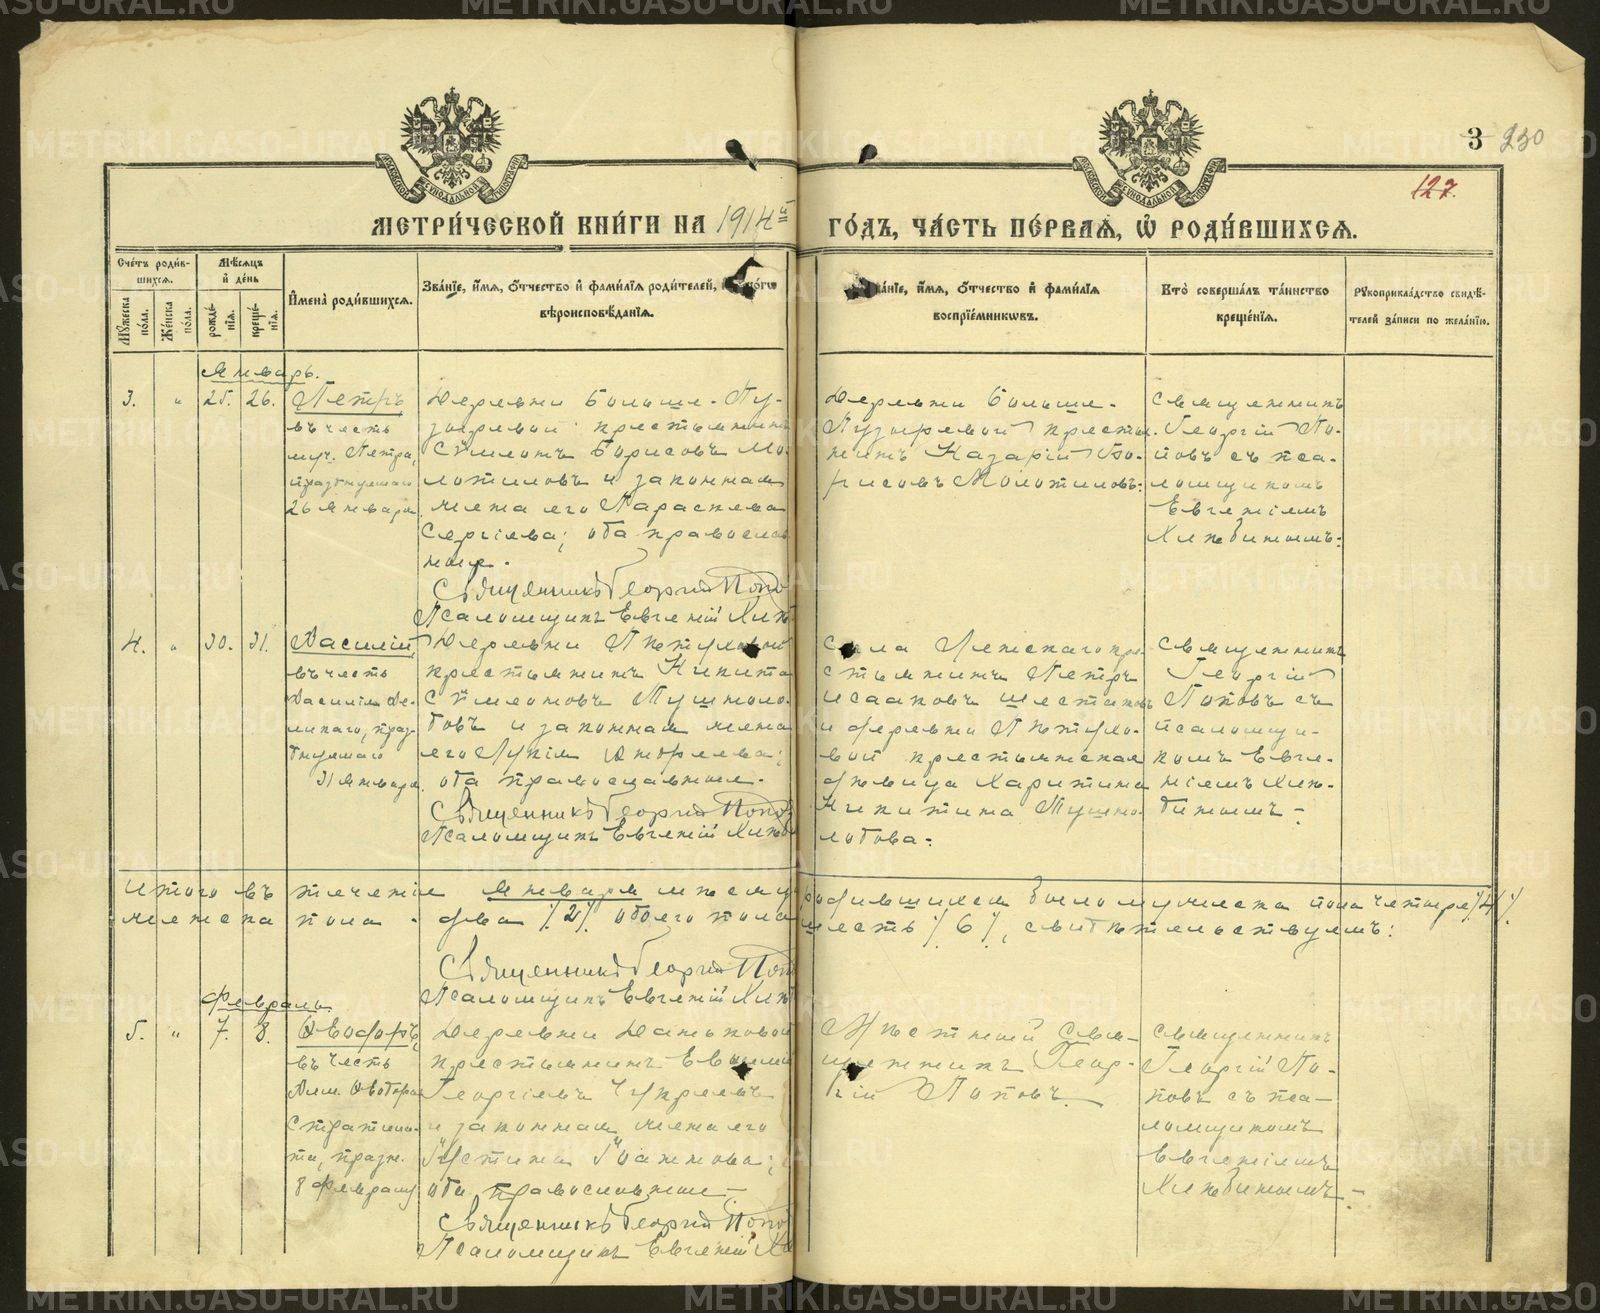 3 230
127.
МЕТРИ́ЧЕСКОЙ КНИ́ГИ НА 1914й ГО́ДЪ, ЧА́СТЬ ПЕ́РВАѦ, Ѽ РОДИ́ВШИХСѦ.
Сче́тъ роди́в-
шихсѧ.
Мꙋ́жеска по́ла.
Же́нска по́ла.
Мѣ́сѧцъ
и҆ де́нь
рожде́-
нїѧ.
креще́-
нїѧ.
И҆мена̀ роди́вшихсѧ.
Зва́нїе, и҆́мѧ, ѻ҆́тчество и҆ фами́лїѧ роди́телей,
вѣроисповѣ́данїѧ.
Зва́нїе, и҆́мѧ, ѻ҆́тчество и҆ фами́лїѧ
воспрїе́мниковъ.
Кто̀ соверша́лъ та́инство
креще́нїѧ.
Рꙋкоприкла́дство свидѣ́-
телей за́писи по жела́нїю.
Январь.
3. " 25. 26.
Петръ
въ честь
муч. Петра,
празднуемаго
26 Января.
Деревни Больше-Пу-
зыревой крестьянинъ
Сѵмеонъ Борисовъ Мо-
лотиловъ и законная
жена его Параскева
Сергіева; оба православ
ные.
Священникъ Георгій Попо
Псаломщикъ Евгеній Хлѣб
Деревни Больше-
Пузыревой крестья-
нинъ Назарій Бо-
рисовъ Молотиловъ:
Священникъ
Георгій По-
повъ съ пса-
ломщикомъ
Евгеніемъ
Хлѣбинымъ:
4. " 30. 31.
Василій,
въ честь
Василія Ве-
ликаго, праз-
днуемаго
31 Января.
Деревни
крестьянинъ Никита
Сѵмеоновъ Тушноло-
бовъ и законная жена
его Лукія Андреева;
оба православные.
Священникъ Георгій Попов
Псаломщикъ Евгеній Хлѣб
Села кре-
стьянинъ Петръ
Исааковъ Шестаковъ
и деревни
вой крестьянская
дѣвица Харитина
Никитина Тушно-
лобова:
Священникъ
Георгій
Поповъ съ
псаломщи-
комъ Евге-
ніемъ Хлѣ-
бинымъ:
Итого въ теченіи Января мѣсяца родившихся было мужеска пола четыре /4/
женска пола - два /2/ обоего пола шесть /6/, свидѣтельствуемъ:
Священникъ Георгій Поп
Псаломщикъ Евгеній Хлѣб
Февраль
5. " 7. 8.
Ѳеодоръ,
въ честь
Вмч. Ѳеодора
Стратила-
та, праздн.
8 Февраля
Деревни Даньковой
крестьянинъ
Георгіевъ Чупреевъ
и законная жена его
Іустина Іоаннова;
оба православные.
Священникъ Георгій Попо
Псаломщикъ Евгеній Хл
Мѣстный Свя-
щенникъ Геор-
гій Поповъ.
Священникъ
Георгій По-
повъ съ пса-
ломщикомъ
Евгеніемъ
Хлѣбинымъ
METRIKI.GASO-URAL.RU